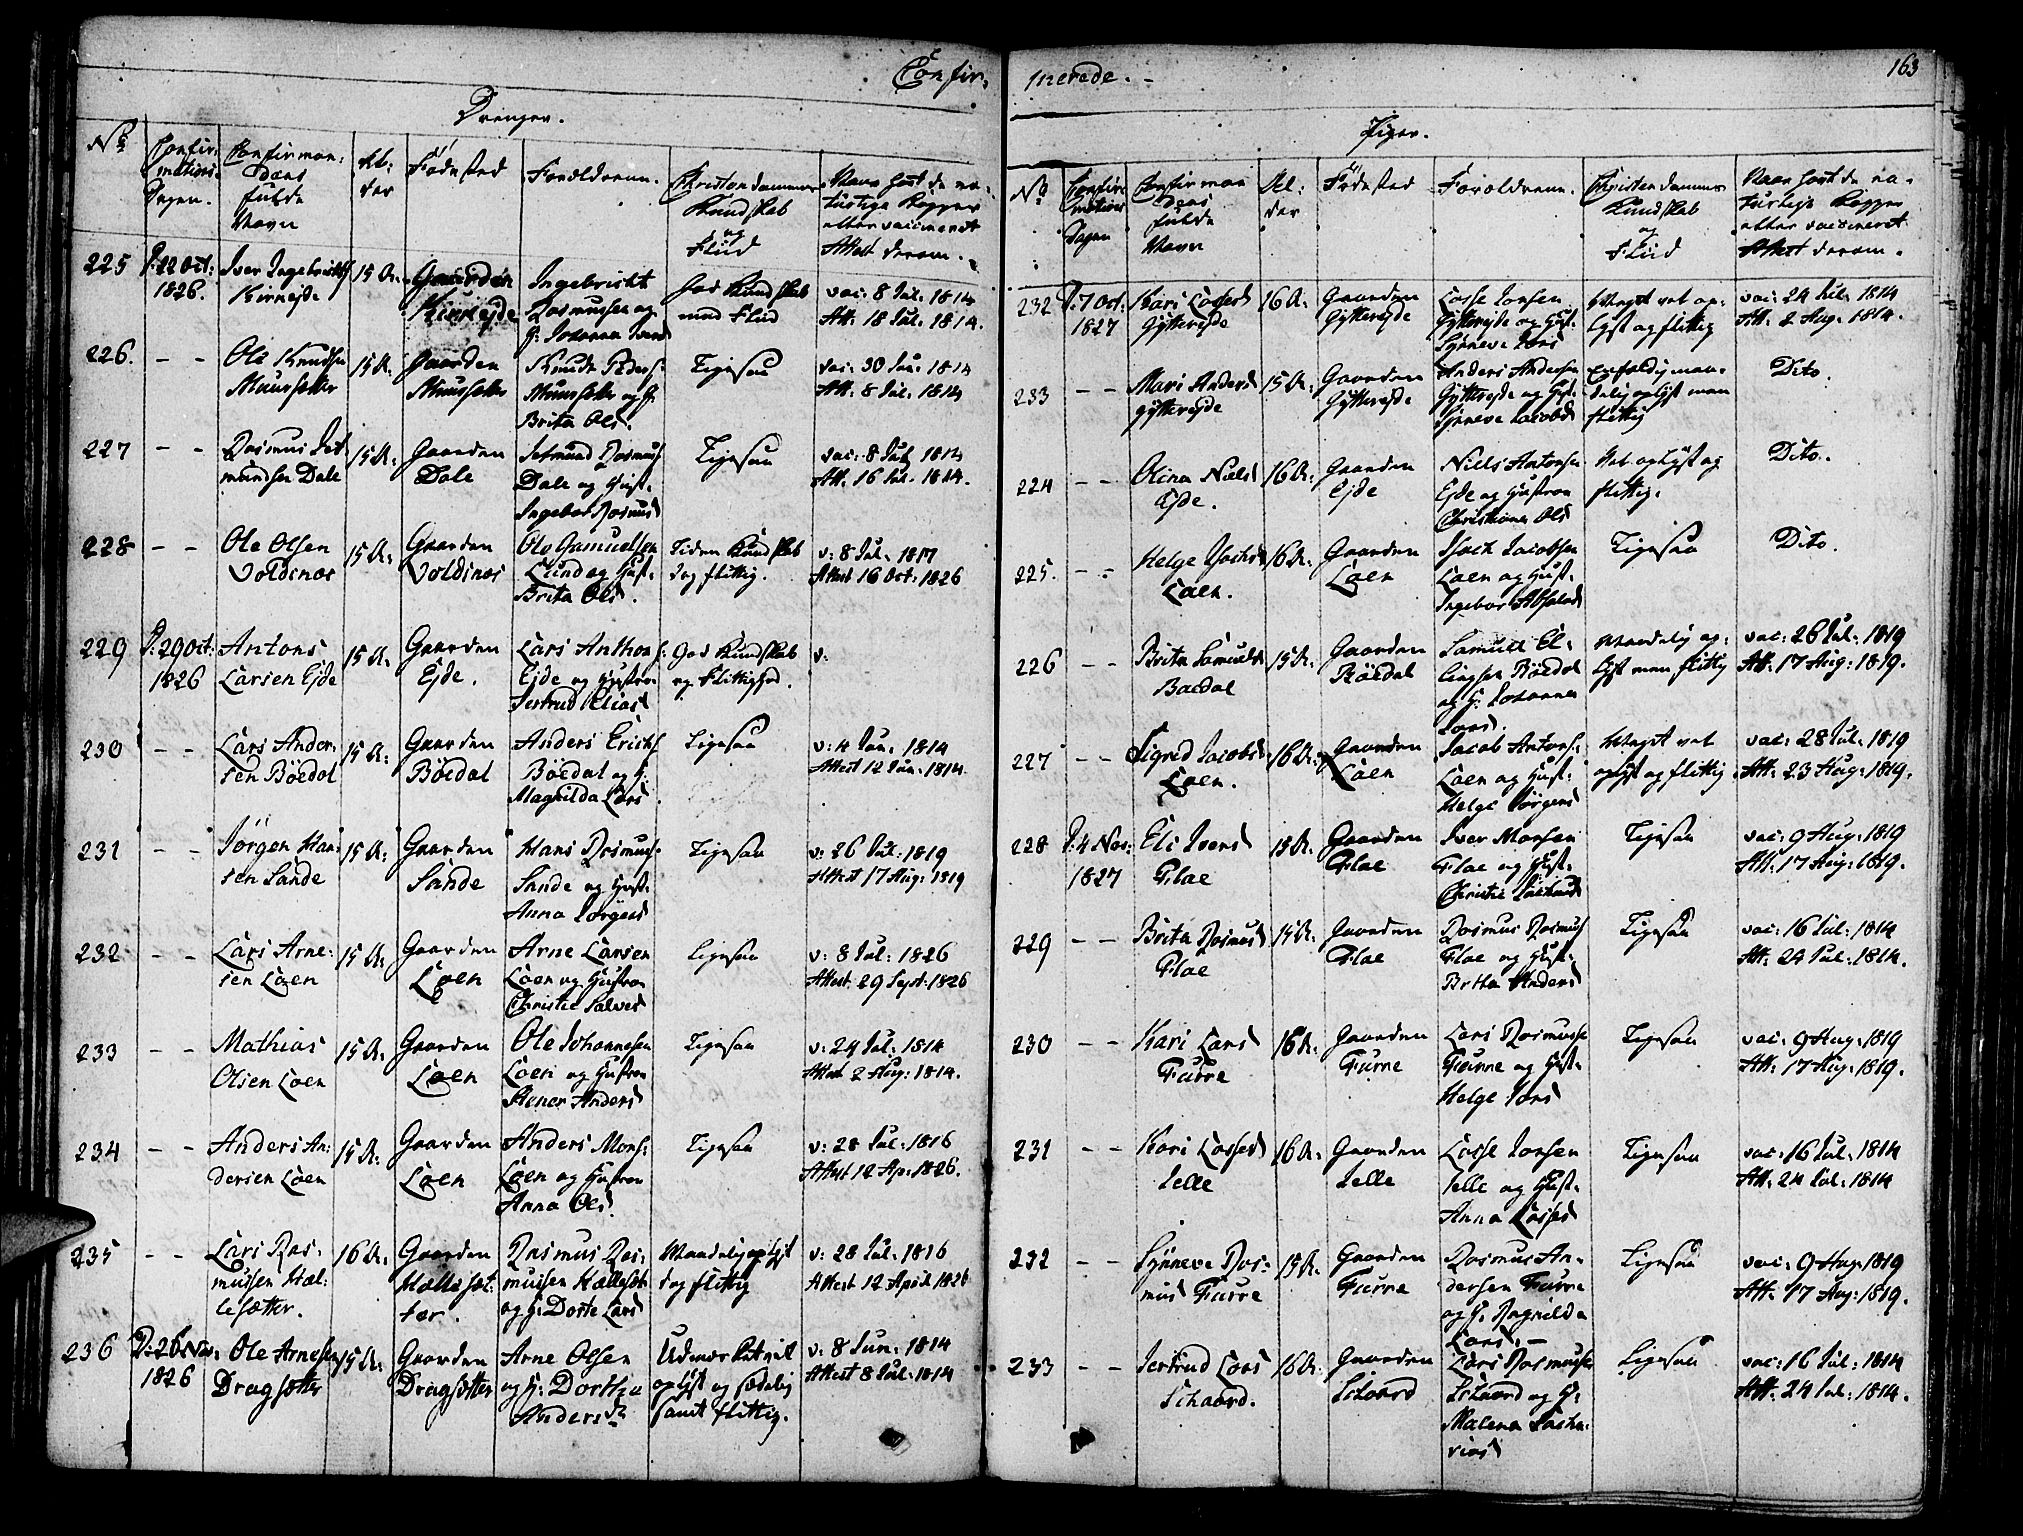 Confirmerede. –
163
Drenger.
No
Confirmations Dagen.
Confirmandens fulde Navn
Alder
Födested
Forældrene.
Christendommens Kundskab og Fliid
Naar havt de naturlige Kopper eller vaccineret Attest derom.
225
D: 22 Oct: 1826.
Iver Ingebrichts Kirkejde
15 A:
Gaarden Kirkejde
Ingebricht Rasmussen og H: Johanna Iversd
God Kundskab med Fliid
vac: 8 Jul: 1814
Att: 18 Jul: 1814.
226.
– –
Ole Knudsen Muursætter
15 A:
Gaarden Muursætter
Knud Peders: Muursætter og H: Brita Olsd.
Ligesaa
vac: 30 Jun: 1814
Att: 8 Jul: 1814
227
– –
Rasmus Jetmundsen Dale
15 A:
Gaarden Dale
Jetmund Rasmus: Dale og Hust: Ingebor Rasmusd
Ligesaa
vac: 8 Jul: 1814
Att: 16 Jul: 1814.
228
– –
Ole Olsen Voldsnæs
15 A:
Gaarden Voldsnæs
Ole Samuelsen Lund og Hust: Brita Olsd.
Liden Kundskab dog flittig.
v: 8 Jul: 1817
Attest 16 Oct: 1826
229
D: 29 Oct: 1826
Antons Larsen Ejde
15 A:
Gaarden Ejde.
Lars Anthons: Ejde og Hustroe Jertrud Eliasd
God Kundskab og Flittighed.
v:
230
– –
Lars Andersen Böedal
15 A:
Gaarden Böedal
Anders Erichs: Böedal og H: Magnilda Larsd
Ligesaa
v: 4 Jun: 1814
Attest 12 Jun: 1814.
231
– –
Jörgen Hansen Sande
15 A:
Gaarden Sande
Hans Rasmus: Sande og Hust: Anna Jörgensd
Ligesaa
v: 26 Jul: 1819
Attest 17 Aug: 1819
232
– –
Lars Arnesen Loen
15 A:
Gaarden Loen
Arne Larsen Loen og Hustroe Christie Salvesd
Ligesaa
v: 8 Jul: 1826
Attest 29 Sept: 1826
233
– –
Mathias Olsen Loen
15 A:
Gaarden Loen
Ole Johannesen Loen og Hustroe Andersd
Ligesaa
v: 24 Jul: 1814
Attest 2 Aug: 1814.
234
– –
Anders Andersen Loen
15 A:
Gaarden Loen
Anders Mons: Loen og Hustroe Anna Olsd.
Ligesaa
v: 28 Jul: 1816
Attest 12 Ap: 1826.
235
– –
Lars Rasmussen Hællesætter.
16 A:
Gaarden Hællesætter.
Rasmus Rasmussen Hællesæt og H: Dorte Larsd
Maadelig oplyst dog flittig
v: 28 Jul: 1816
Attest 12 April 1826
236
D: 26 Nov: 1826
Ole Arnesen Dragsætter
15 A:
Gaarden Dragsætter
Arne Olsen og H: Dorthea Andersd
Udmærket vel oplyst og sædelig samt flittig.
v: 8 Jun: 1814
Attest 8 Jul: 1814
Piger.
No
Confirmations Dagen
Confirmandens fulde Navn
Alder
Födested
Forældrene.
Christendommens Kundskab og Fliid
Naar havt de naturlige Kopper eller vaccineret Attest derom.
232
D: 7 Oct: 1827
Kari Lassesd Gytterejde
16 A:
Gaarden Gytterejde
Lasse Jonsen Gytterejde og Hust: Synneve Larsd
Meget vel oplyst og flittig
vac: 24 Jul: 1814
Att: 2 Aug: 1814.
233
– –
Mari Andersd Gytterejde
15 A:
Gaarden Gytterejde
Anders Andersen Gytterejde og Hust: Synneve Jacobsd
Enfoldig maadelig oplyst men flittig
Dito.
224
– –
Olina Nielsd Ejde.
16 A:
Gaarden Ejde
Niels Antonsen Ejde og Hustroe Christianna Olsd
Vel oplyst og flittig.
Dito.
225.
– –
Helge Isachsd Loen.
16 A:
Gaarden Loen
Isach Jacobsen Loen og Hust: Ingebor Absalond
Ligesaa
Dito.
226
– –
Brita Samuelsd Boedal
15 A:
Gaarden Böedal
Samuel Ellingsen Böedal og H: Johanna Larsd.
Maadelig oplyst men flittig
vac: 26 Jul: 1819
Att: 17 Aug: 1819.
227
– –
Sigred Jacobsd Loen.
16 A:
Gaarden Loen
Jacob Antons: Loen og Hust: Helge Jörgensd
Meget vel oplyst og flittig
vac: 28 Jul: 1819
Att: 23 Aug: 1819.
228
D: 4 Nov: 1827
Eli Iversd Floe
15 A:
Gaarden Floe
Iver Monsen Floe og Hust: Christie
Ligesaa
vac: 9 Aug: 1819
Att: 17 Aug: 1819.
229
– –
Brita Rasmusd Floe
15 A:
Gaarden Floe
Rasmus Rasmus: Floe og Hust: Britha Andersd
Ligesaa
vac: 16 Jul: 1814
Att: 24 Jul: 1814.
230
– –
Kari Larsd Furre
16 A:
Gaarden Furre
Lars Rasmusse Furre og Hust: Helge Larsd
Ligesaa
vac: 9 Aug: 1819
Att: 17 Aug: 1819.
231
– –
Kari Lassesd Jelle
16 A:
Gaarden Jelle
Lasse Jonsen Jelle og Hust: Anna Lassesd
Ligesaa
vac: 16 Jul: 1814
Att: 24 Jul: 1814
232
– –
Synneve Rasmusd Furre
15 A:
Gaarden Furre
Rasmus Andersen Furre og H: Ragnilda Larsd. –
Ligesaa
vac: 9 Aug: 1819
Att: 17 Aug: 1819.
233
– –
Jertrud Larsd Schaard.
16 A:
Gaarden Schaard
Lars Rasmusse Schaard og H: Malena Zachariasd
Ligesaa
vac: 16 Jul: 1814
Att: 24 Jul: 1814.